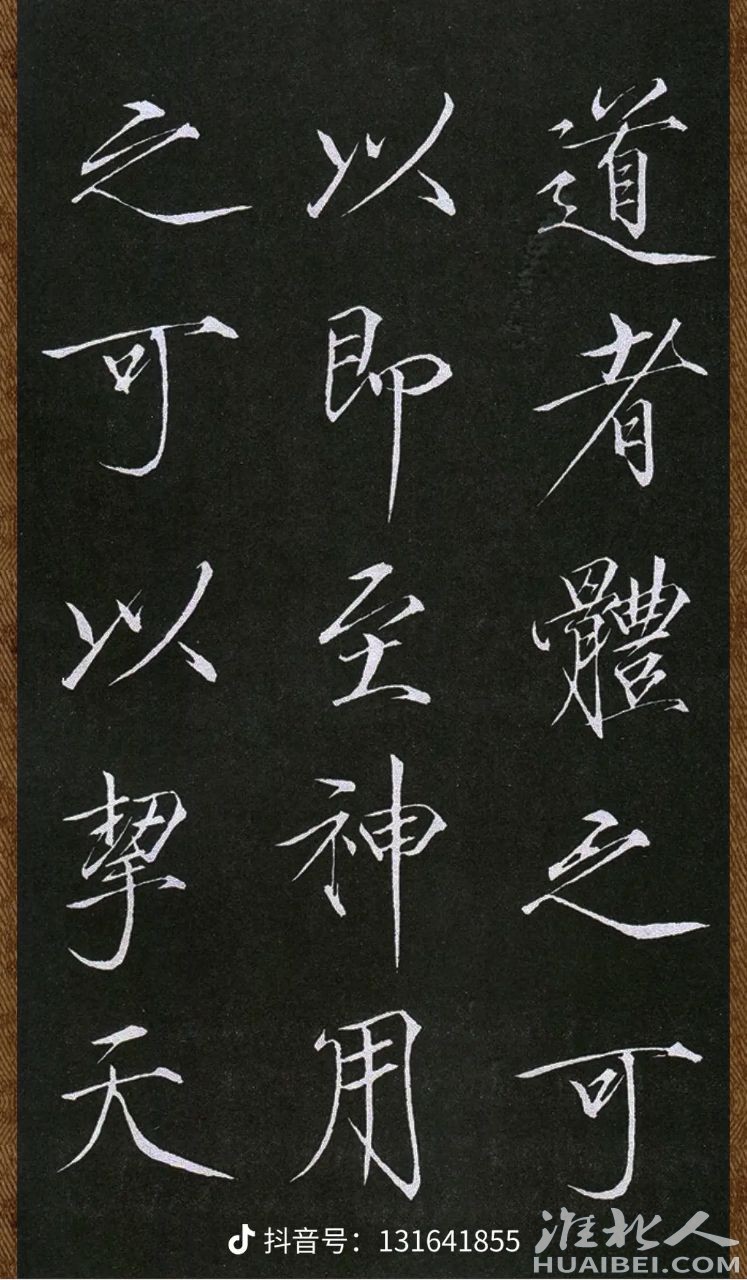 道者體之可
以即至神用
之可以挈天
抖音号：131641855
淮北人
HUAIBEI.COM